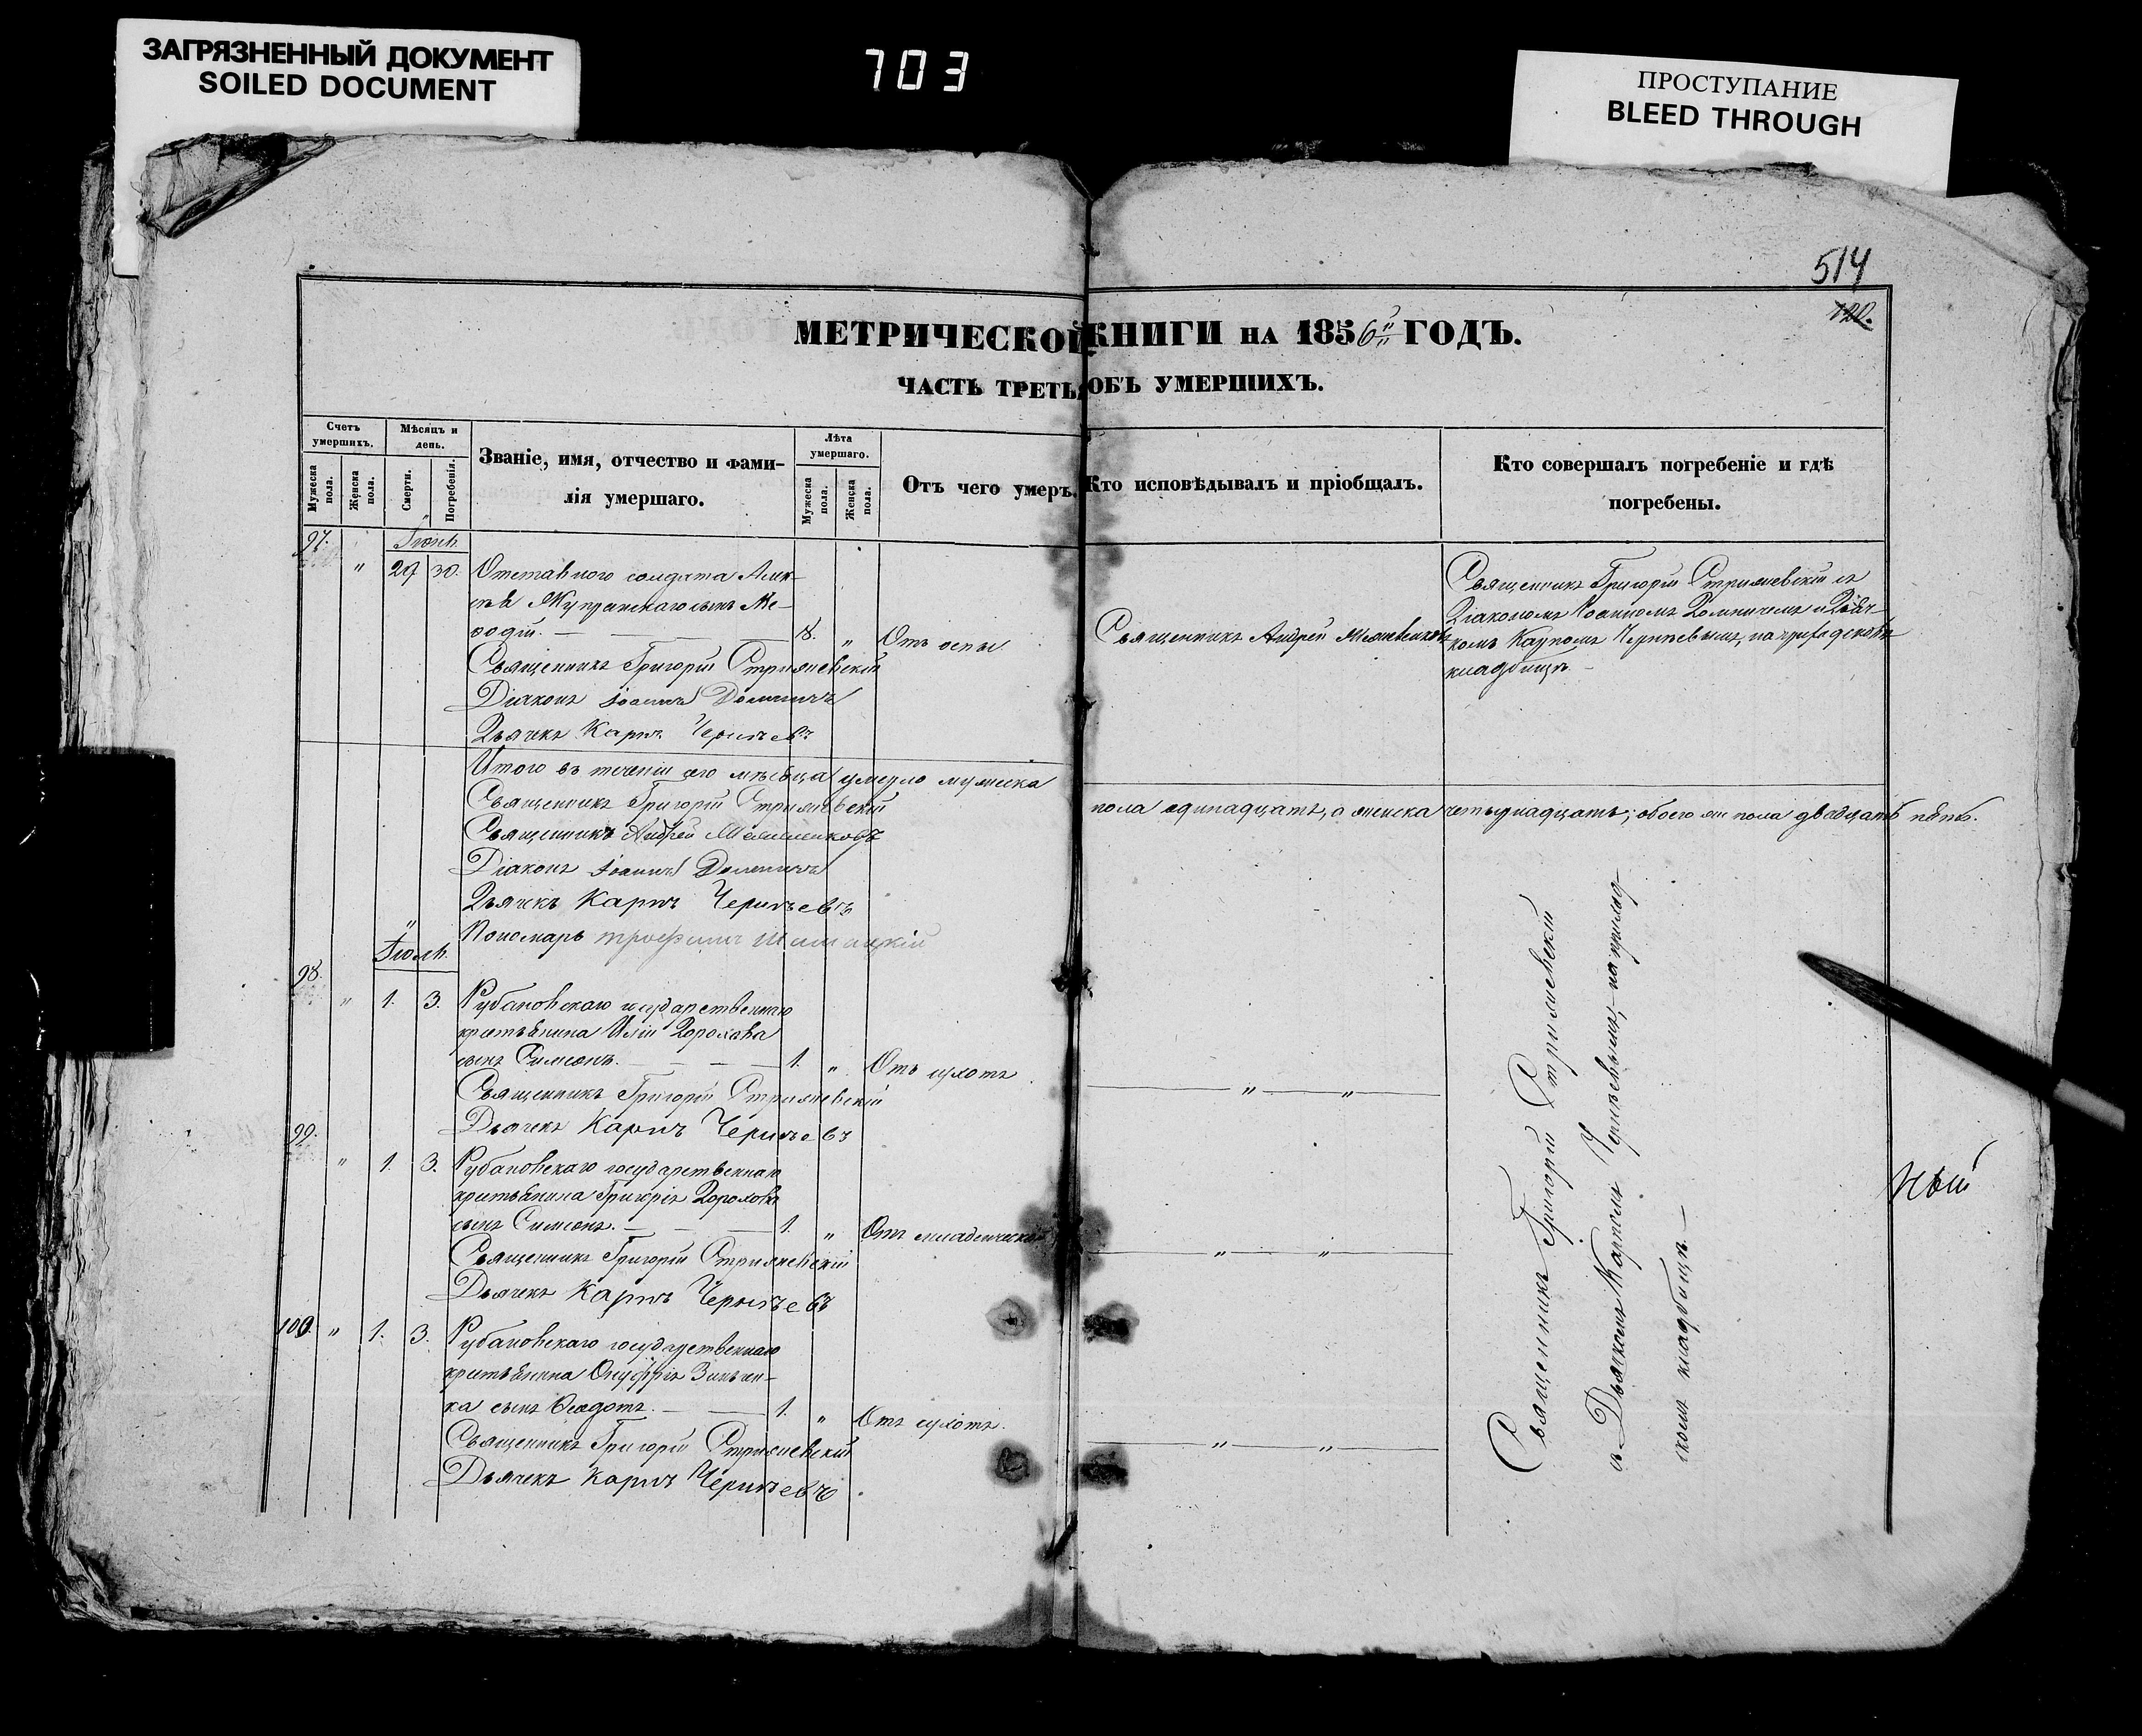 ЗАГРЯЗНЕННЫЙ ДОКУМЕНТ
SOILED DOCUMENT
703
ПРОСТУПАНИЕ
BLEED THROUGH
514
120.
МЕТРИЧЕСКОЙ КНИГИ НА 1856 ГОДЪ.
ЧАСТЬ ТРЕТЬЯ ОБЪ УМЕРШИХЪ.
Счетъ умершихъ.
Мужеска пола.
Женска пола.
Мѣсяцъ и день.
Смерти.
Погребенія.
Званіе, имя, отчество и фами-
лія умершаго.
Лѣта умершаго.
Мужеска пола.
Женска пола.
Отъ чего умеръ.
Кто исповѣдывалъ и пріобщалъ.
Кто совершалъ погребеніе и гдѣ
погребены.
97.
Іюнь
" 29 30. Отставнаго солдата Алек-
сѣя сынъ Ме-
фодій. — 18. " Отъ оспы
Священникъ Андрей
Священникъ Григорій Стрижевскій съ
Діакономъ Іоанномъ и Дьяч-
комъ Карпомъ на приходскомъ
кладбищѣ. —
Священникъ Григорій Стрижевскій
Діаконъ Іоаннъ
Дьячекъ Карпъ
Итого въ теченіи сего мѣсяца умерло мужеска
пола одинадцать, а женска четырнадцать; обоего же пола двадцать пять.
Священникъ Григорій Стрижевскій
Священникъ Андрей
Діаконъ Іоаннъ
Дьячекъ Карпъ
Пономарь
Іюль
98.
" 1. 3. Рубановскаго государственнаго
крестьянина Иліи Дорохова
сынъ Симеонъ. — — — 1. " Отъ сухотъ
— " — " —
Священникъ Григорій Стрижевскій
Дьячекъ Карпъ
99.
" 1. 3. Рубановскаго государственнаго
крестьянина Григорія Дорохова
сынъ Симеонъ. — — — 1. " Отъ младенческой
— " — " —
Священникъ Григорій Стрижевскій
Дьячекъ Карпъ
100. " 1. 3. Рубановскаго государственнаго
крестьянина Онуфрія Зинчен-
ка сынъ Ѳеодотъ. — — 1. " Отъ сухотъ.
— " — " —
Священникъ Григорій Стрижевскій
Дьячекъ Карпъ
Священникъ Григорій Стрижевскій
съ Дьячкомъ Карпомъ на приход-
скомъ кладбищѣ. —